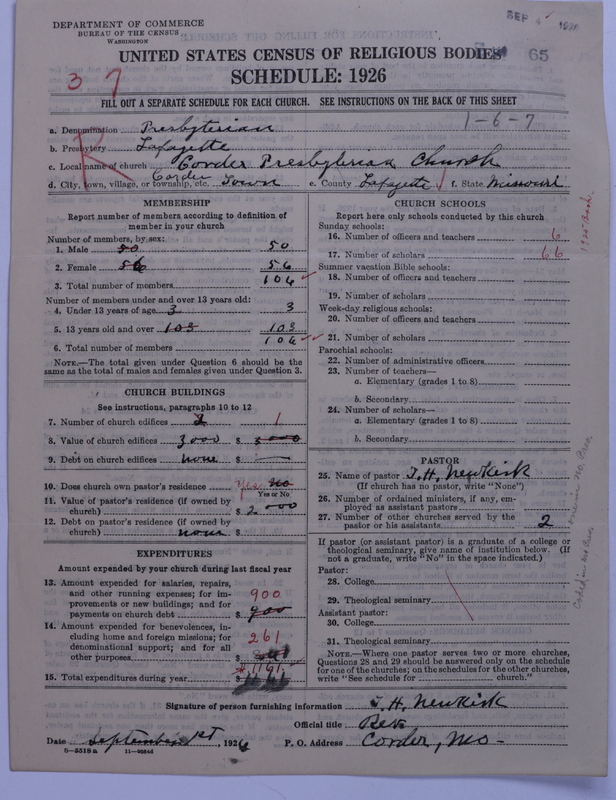 DEPARTMENT OF COMMERCE
BUREAU OF THE CENSUS
WASHINGTON
SEP
65
UNITED STATES CENSUS OF RELIGIOUS BODIES
SCHEDULE: 1926
3 7
FILL OUT A SEPARATE SCHEDULE FOR EACH CHURCH. SEE INSTRUCTIONS ON THE BACK OF THIS SHEET
1-6-7
a. Denomination Presbyterian
b. Presbytery Lafayette
c. Local name of church Corder Presbyterian Church
d. City, town, village, or township, etc. Corder Town e. County Lafayette f. State Missouri
R
MEMBERSHIP
Report number of members according to definition of
member in your church
Number of members, by sex:
1. Male 50 50
2. Female 56 56
3. Total number of members 106
Number of members under and over 13 years old:
4. Under 13 years of age 3 3
5. 13 years old and over 103 103
6. Total number of members 106
NOTE.—The total given under Question 6 should be the
same as the total of males and females given under Question 3.
CHURCH BUILDINGS
See instructions, paragraphs 10 to 12
7. Number of church edifices 2 1
8. Value of church edifices 3000 $ 3000
9. Debt on church edifices none $
10. Does church own pastor's residence Yes No
Yes or No
11. Value of pastor's residence (if owned by
church) $ 2000
12. Debt on pastor's residence (if owned by
church) none $
EXPENDITURES
Amount expended by church during last fiscal year
13. Amount expended for salaries, repairs,
and other running expenses; for im-
provements or new buildings; and for
payments on church debt 900 $ 900
14. Amount expended for benevolences, in-
cluding home and foreign missions; for
denominational support; and for all
other purposes 261 $
15. Total expenditures during year $ 1161
CHURCH SCHOOLS
Report here only schools conducted by this church
Sunday schools:
16. Number of officers and teachers 6
17. Number of scholars 66
Summer vacation Bible schools:
18. Number of officers and teachers
19. Number of scholars
Week-day religious schools:
20. Number of officers and teachers
21. Number of scholars
Parochial schools:
22. Number of administrative officers
23. Number of teachers—
a. Elementary (grades 1 to 8)
b. Secondary
24. Number of scholars—
a. Elementary (grades 1 to 8)
b. Secondary
PASTOR
25. Name of pastor T. H. Newkirk
(If church has no pastor, write "None")
26. Number of ordained ministers, if any, em-
ployed as assistant pastors
27. Number of other churches served by the
pastor or his assistants 2
If pastor (or assistant pastor) is a graduate of a college or
theological seminary, give name of institution below. (If
not a graduate, write "No" in the space indicated.)
Pastor:
28. College
29. Theological seminary
Assistant pastor:
30. College
31. Theological seminary
NOTE.—Where one pastor serves two or more churches,
Questions 28 and 29 should be answered only on the schedule
for one of the churches; on the schedules for the other churches,
write "See schedule for church."
Signature of person furnishing information T. H. Newkirk
Official title Rev
Date September 1st, 1926 P. O. Address Corder, Mo-
8-5518a 11-9284